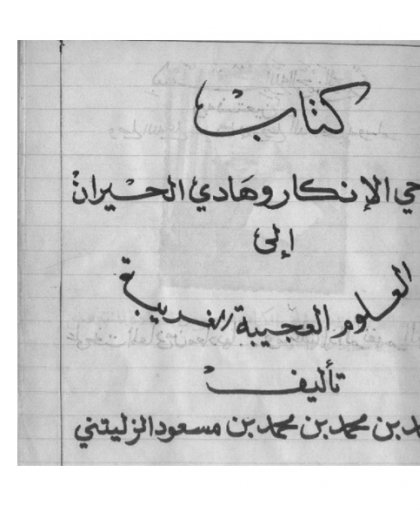 كتاب
حي الإنكار وهادي الحيران
إلى
العلوم العجيبة الغريبة
تأليف
مد بن محمد بن محمد بن مسعود الزليتني